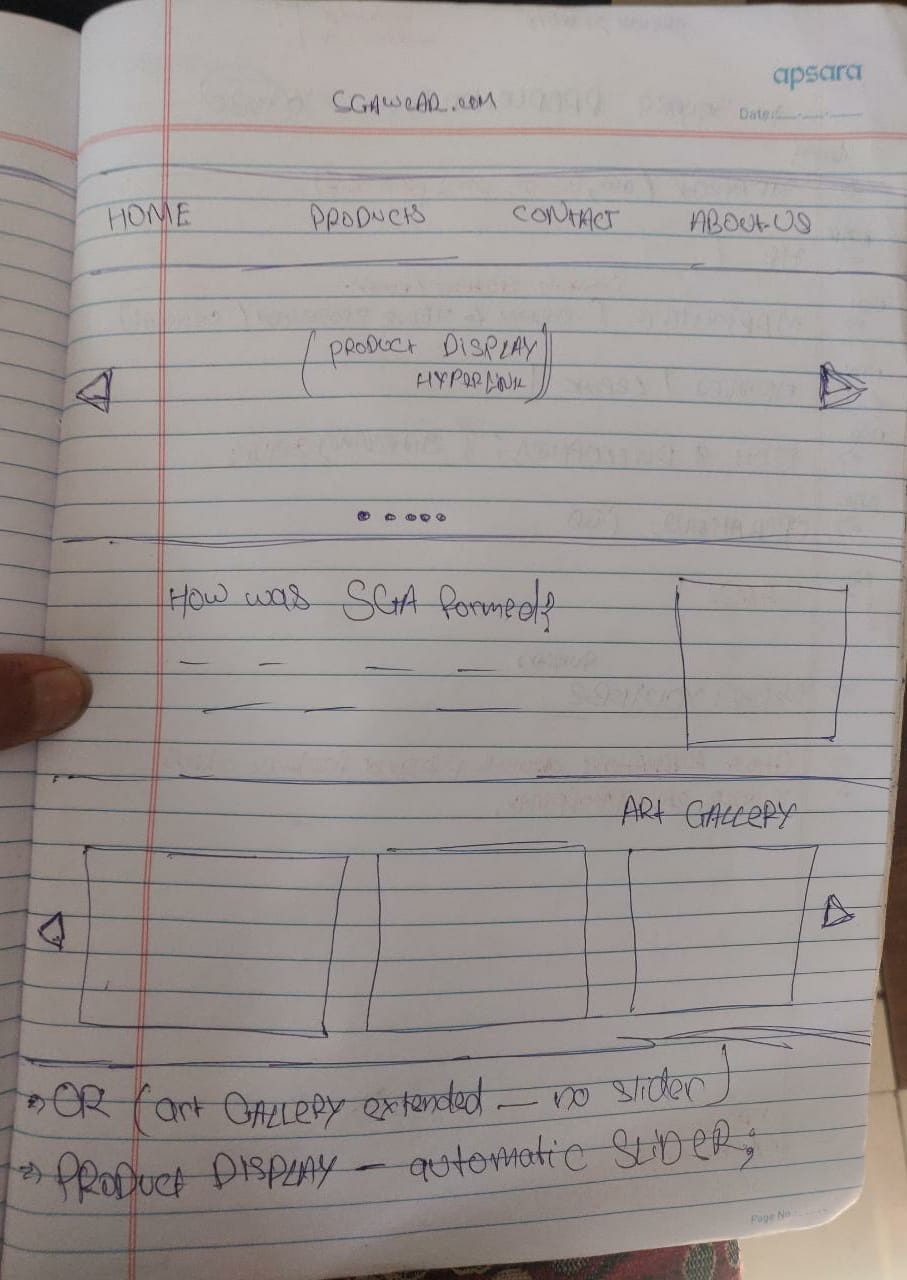 apsara
SGAWEAR.COM
Date:
HOME PRODUCTS CONTACT ABOUT-US
(PRODUCT DISPLAY
HYPERLINK)
How was SGA formed?
ART GALLERY
⇒ OR (art GALLERY extended — no slider)
⇒ PRODUCT DISPLAY — automatic SLIDER;
Page No